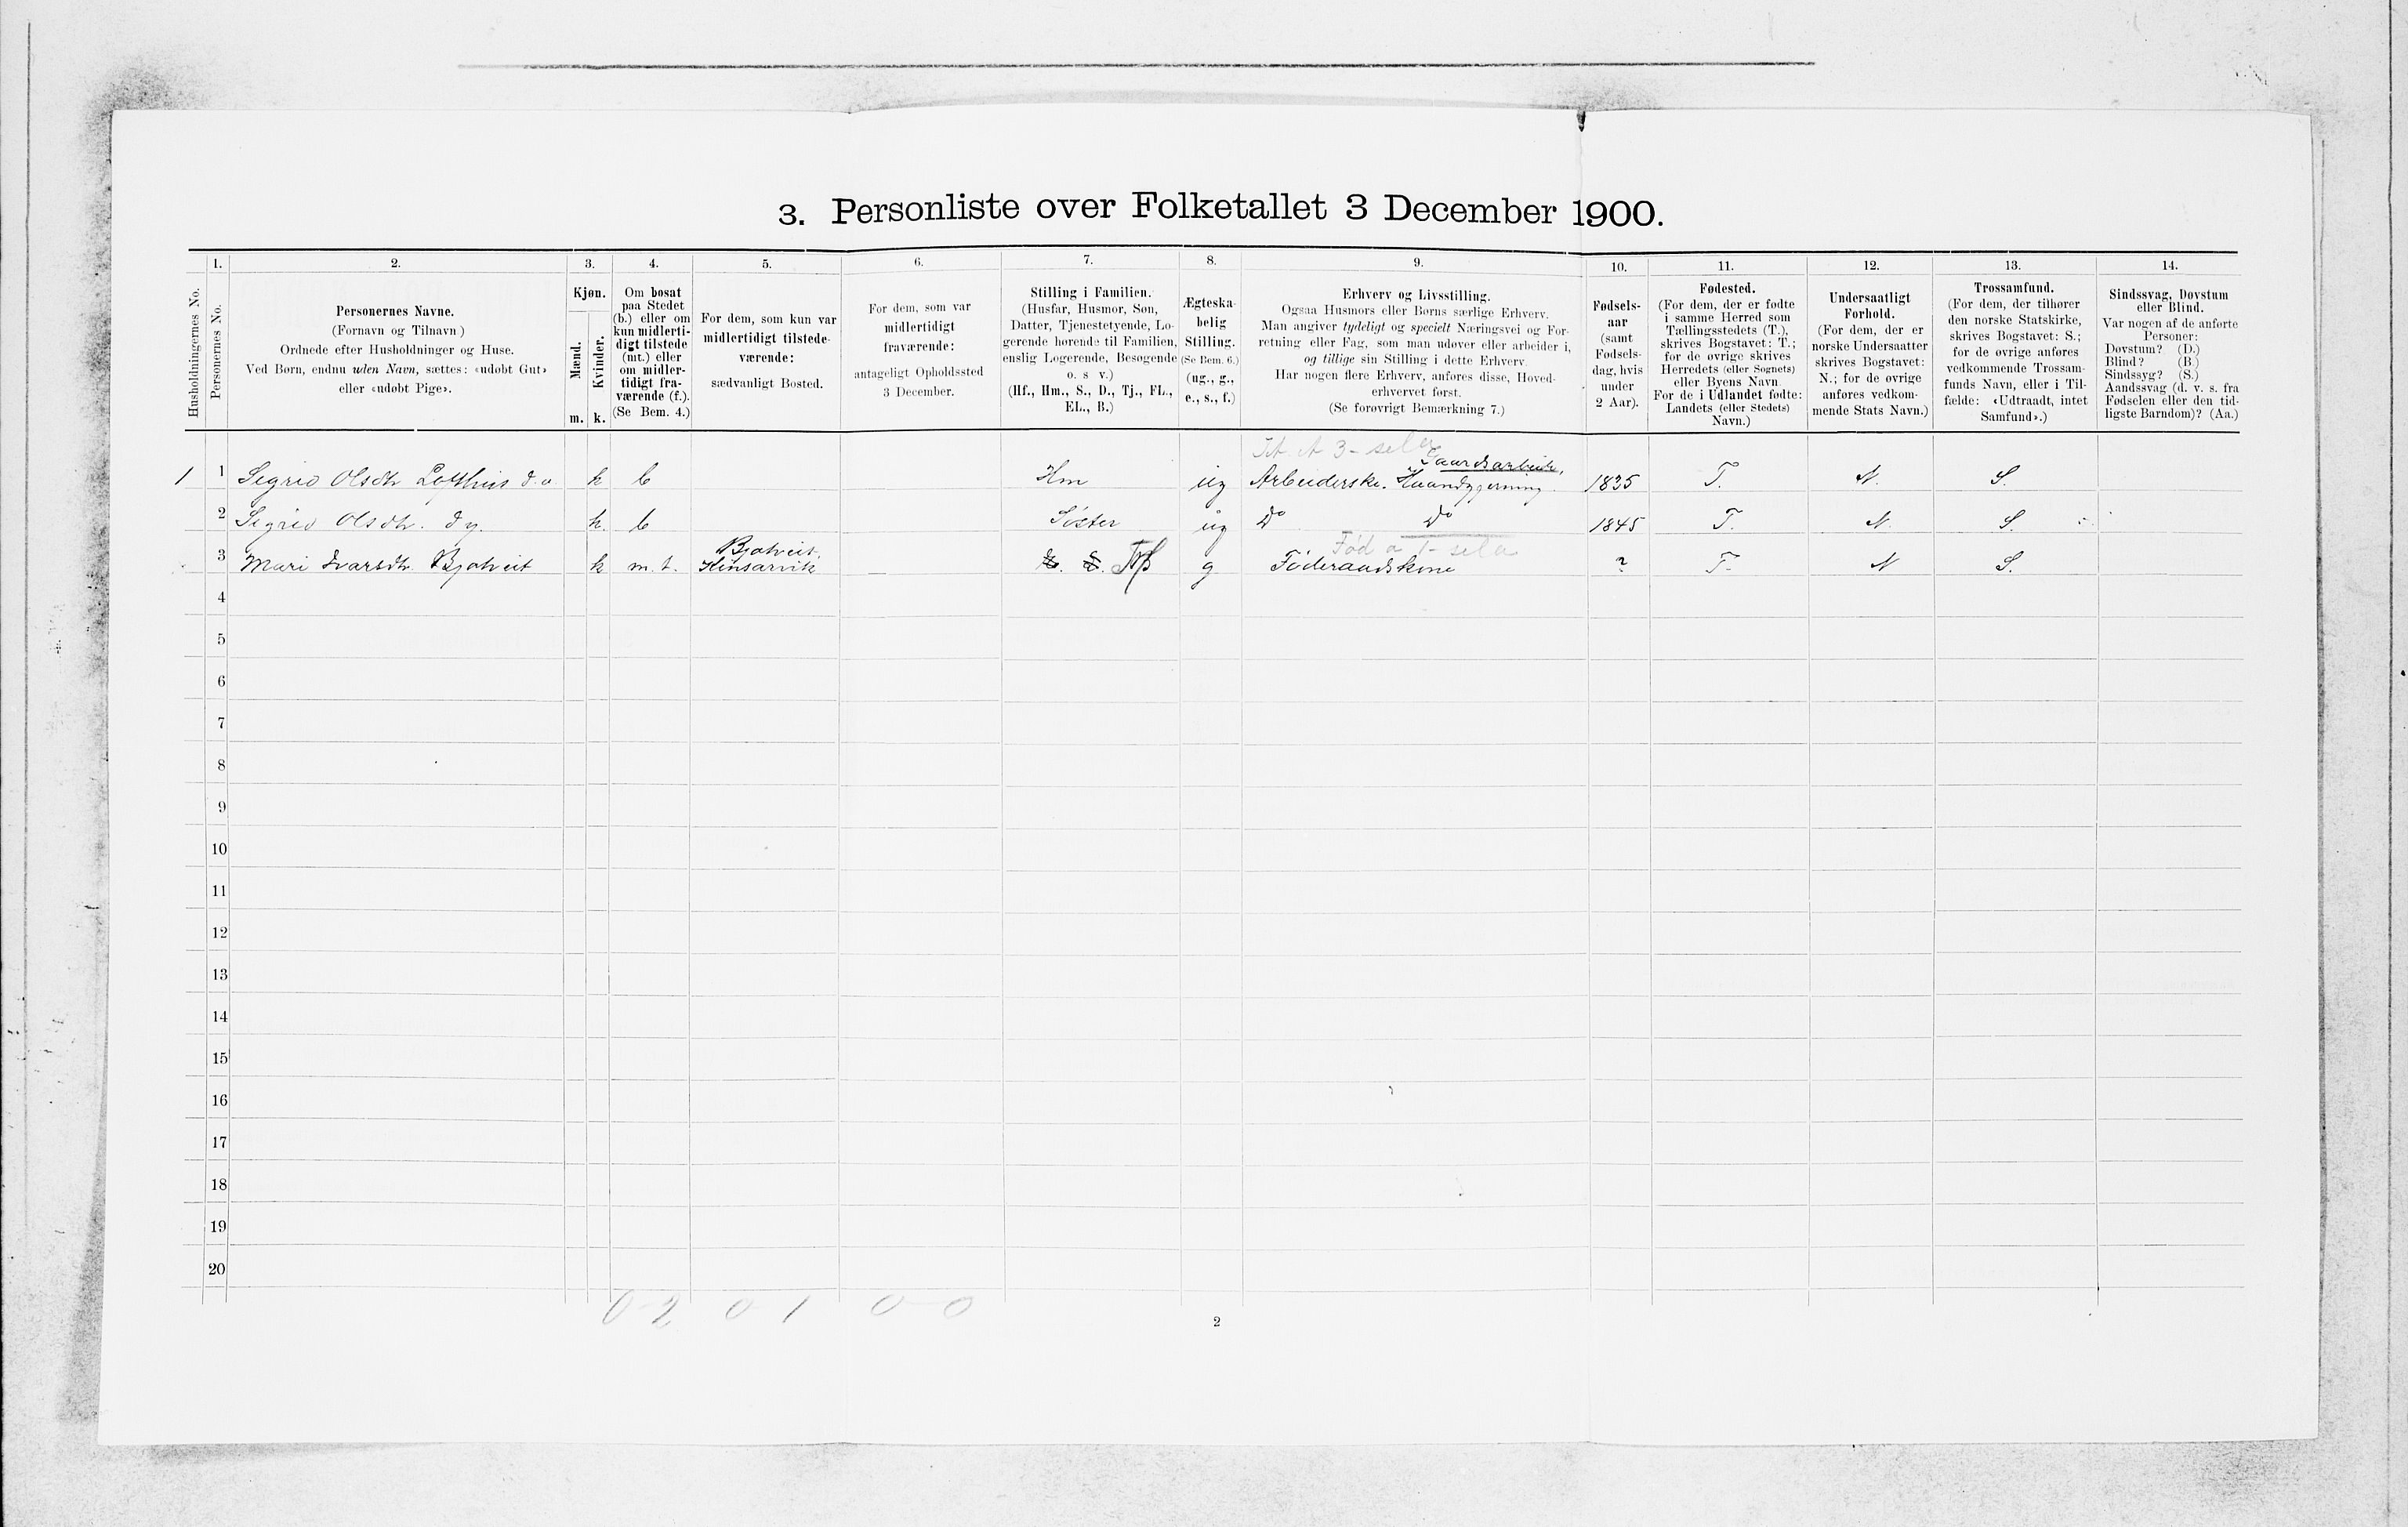 3. Personliste over Folketallet 3 December 1900.
Husholdningernes No.
1.
Personernes No.
2.
Personernes Navne.
(Fornavn og Tilnavn)
Ordnede efter Husholdninger og Huse.
Ved Børn, endnu uden Navn, sættes: «udøbt Gut»
eller «udøbt Pige».
3.
Kjøn.
Mænd.
Kvinder.
m. k.
4.
Om bosat
paa Stedet
(b.) eller om
kun midlerti-
digt tilstede
(mt.) eller
om midler-
tidigt fra-
værende (f.).
(Se Bem. 4.)
5.
For dem, som kun var
midlertidigt tilstede-
værende:
sædvanligt Bosted.
6.
For dem, som var
midlertidigt
fraværende:
antageligt Opholdssted
3 December.
7.
Stilling i Familien.
(Husfar, Husmor, Søn,
Datter, Tjenestetyende, Lo-
gerende hørende til Familien,
enslig Logerende, Besøgende
o. s v.)
(Hf., Hm., S., D., Tj., FL.,
EL., B.)
8.
Ægteska-
belig
Stilling.
(Se Bem. 6.)
(ug., g.,
e., s., f.)
9.
Erhverv og Livsstilling.
Ogsaa Husmors eller Børns særlige Erhverv.
Man angiver tydeligt og specielt Næringsvei og For-
retning eller Fag, som man udøver eller arbeider i,
og tillige sin Stilling i dette Erhverv.
Har nogen flere Erhverv, anføres disse, Hoved-
erhvervet først.
(Se forøvrigt Bemærkning 7.)
10.
Fødsels-
aar
(samt
Fødsels-
dag, hvis
under
2 Aar).
11.
Fødested.
(For dem, der er fødte
i samme Herred som
Tællingsstedets (T.),
skrives Bogstavet: T.;
for de øvrige skrives
Herredets (eller Sognets)
eller Byens Navn.
For de i Udlandet fødte:
Landets (eller Stedets)
Navn.)
12.
Undersaatligt
Forhold.
(For dem, der er
norske Undersaatter
skrives Bogstavet:
N.; for de øvrige
anføres vedkom-
mende Stats Navn.)
13.
Trossamfund.
(For dem, der tilhører
den norske Statskirke,
skrives Bogstavet: S.;
for de øvrige anføres
vedkommende Trossam-
funds Navn, eller i Til-
fælde: «Udtraadt, intet
Samfund».)
14.
Sindssvag, Døvstum
eller Blind.
Var nogen af de anførte
Personer:
Døvstum? (D.)
Blind? (B.)
Sindssyg? (S.)
Aandssvag (d. v. s. fra
Fødselen eller den tid-
ligste Barndom)? (Aa.)
Gaardsarbeide,
1 1 Sigrid Olsdtr Lofthus d. æ k b Hm ug Arbeiderske. Haandgjerning. 1835 T. N. S.
2 Sigrid Olsdtr. d y. k. b Søster ug Do Do 1845 T. N. S.
Bjotveit,
3 Mari Ivarsdtr. Bjotveit k m. t. Kinsarvik g Føderaadskone ? T. N S.
4
5
6
7
8
9
10
11
12
13
14
15
16
17
18
19
20
0-2 0 1 0 0
2